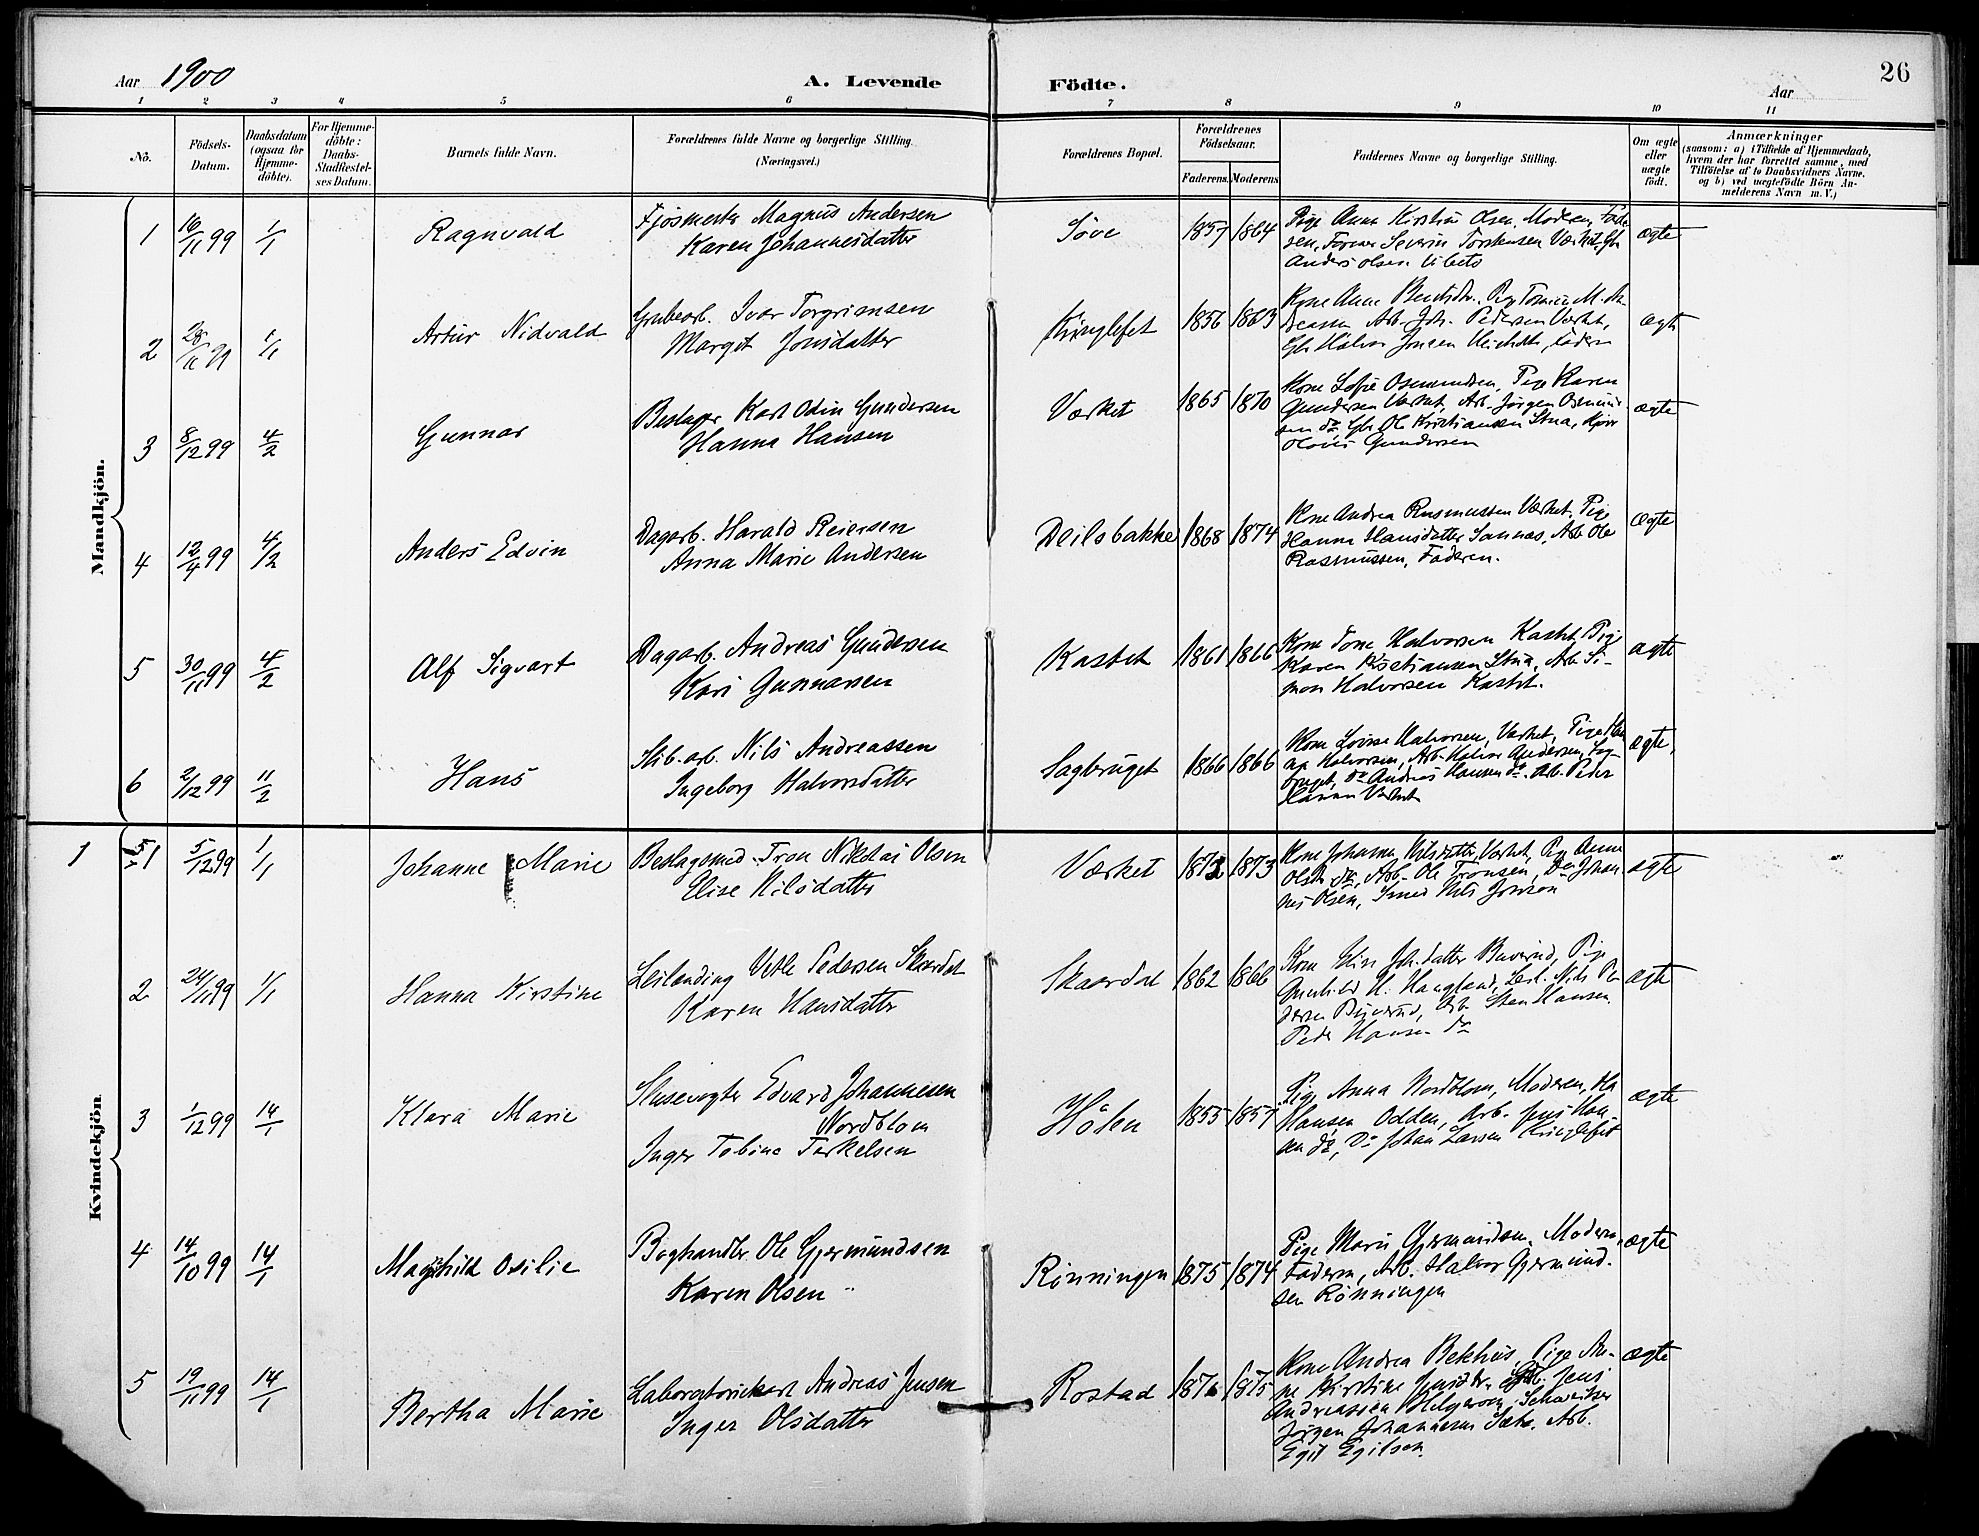 Aar 1900
A. Levende
Födte.
26
Aar
1 2 3 4 5 6 7 8 9 10 11
No.
Födsels-
Datum.
Daabsdatum
(ogsaa for
Hjemme-
döbte).
For Hjemme-
döbte:
Daabs-
Stadfæstel-
ses Datum.
Barnets fulde Navn.
Forældrenes fulde Navne og borgerlige Stilling.
(Næringsvei.)
Forældrenes Bopæl.
Forældrenes
Födselsaar.
Faderens. Moderens
Faddernes Navne og borgerlige Stilling.
Om ægte
eller
uægte
födt.
Anmærkninger
(saasom: a) i Tilfælde af Hjemmedaab,
hvem der har forrettet samme, med
Tilföielse af to Daabsvidners Navne,
og b) ved uægtefödte Börn An-
melderens Navn m. V.)
Mandkjön.
1 16/11 99 1/1 Ragnvald
Fjøsmester Magnus Andersen
Karen Johannesdatter
Søve 1857 1864
Pige Anna Kirstine Olsen, Moderen,
sen, Former Severin Torstensen Værket, Gb
Anders Olsen
ægte
2 28/11 99 1/1 Artur Nidvald
Grubearb. Ivar Torgrimsen
Margit Jonsdatter
Kringlefet 1856 1863
Kone Anne
Arb. Joh. Pedersen Værket,
Gb Halvor Jonsen
ægte
3 8/12 99 4/2 Gunnar
Karl Odin Gundersen
Hanna Hansen
Værket 1865 1870
Kone Sofie Osmundsen, Pige Karen
Gundersen Værket, Arb. Jørgen Osmund-
sen do, Gb. Ole Kristiansen Strua,
Gundersen
ægte
4 12/4 99 4/2 Anders Edvin
Dagarb. Harald Reiersen
Anna Marie Andersen
Deilsbakke 1868 1874
Kone Andrea Rasmussen Værket, Pige
Hanna Hansdatter Sannæs, Arb. Ole
Rasmussen, Faderen.
ægte
5 30/11 99 4/2 Alf Sigvart
Dagarb. Andreas Gundersen
Kari Gunnarsen
Kastet 1861 1866
Kone Tone Halvorsen Kastet, Pige
Karen Kristiansen Strua, Arb. Si-
mon Halvorsen Kastet.
ægte
6 2/12 99 11/2 Hans
Nils Andreassen
Ingeborg Halvorsdatter
Sagbruget 1866 1866
Kone Lovise Halvorsen, Værket, Pige
Halvorsen, Arb. Halvor Andersen, Sag-
bruget, do Andreas Hansen do. Arb. Peder
Hansen Værket
ægte
Kvindekjön.
1 1 5/12 99 1/1 Johanne Marie
Beslagsmed Tron Nikolai Olsen
Elise Nilsdatter
Værket 1873 1873
Kone Johanna Nilsdatter, Værket, Pige Anne
Olsen do, Arb. Ole Tronsen, Do Johan-
nes Olsen, Smed Nils Jonsson
ægte
2 24/11 99 1/1 Hanna Kirstine
Leilending Vetle Pedersen Skaardal
Karen Hansdatter
Skaardal 1862 1866
Kone Elise Joh.datter Buverud, Pige
Gunhild H. Haugland, Leil. Nils Pe-
dersen Buverud, Arb. Sten Hansen
Peder Hansen do
ægte
3 1/12 99 14/1 Klara Marie
Slusevogter Edvard Johannesen
Nordblom
Inger Tobine Terkelsen
Hölen 1855 1857
Pige Anna Nordblom, Moderen,
Hansen Odden, Arb. Jens Han-
sen do, Do Johan Larsen Kringlefet
ægte
4 14/10 99 14/1 Magnhild Osilie
Boghandler Ole Gjermundsen
Karen Olsen
Rönningen 1875 1874
Pige Maria Gjermundsen, Moderen,
Faderen, Arb. Halvor Gjermund-
sen Rönningen
ægte
5 19/11 99 14/1 Bertha Marie
Andreas Jensen
Inger Olsdatter
Rostad 1875
Kone Andrea Bekhus, Pige An-
ne Kirstine Jensdtr. Jens
Andreassen Helgeroen, Schweitser
Jørgen Johannesen Sæter. Arb.
Egil Egilsen.
ægte